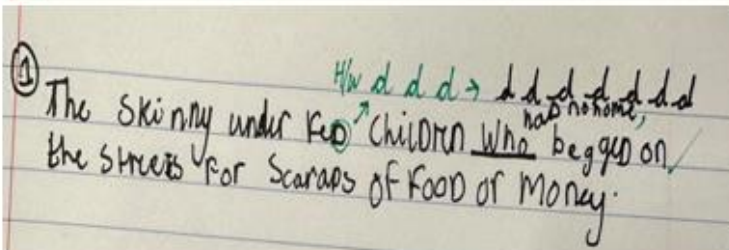 ① H/w d d d → d d d d d d d
had no home,
The skinny under feD ChilDren who beggeD on
the streets for scaraps of FooD or money.